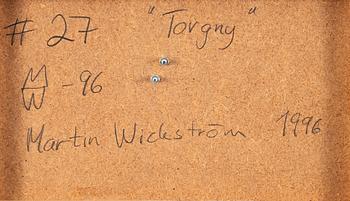 # 27 "Torgny"
MW -96
Martin Wickström 1996